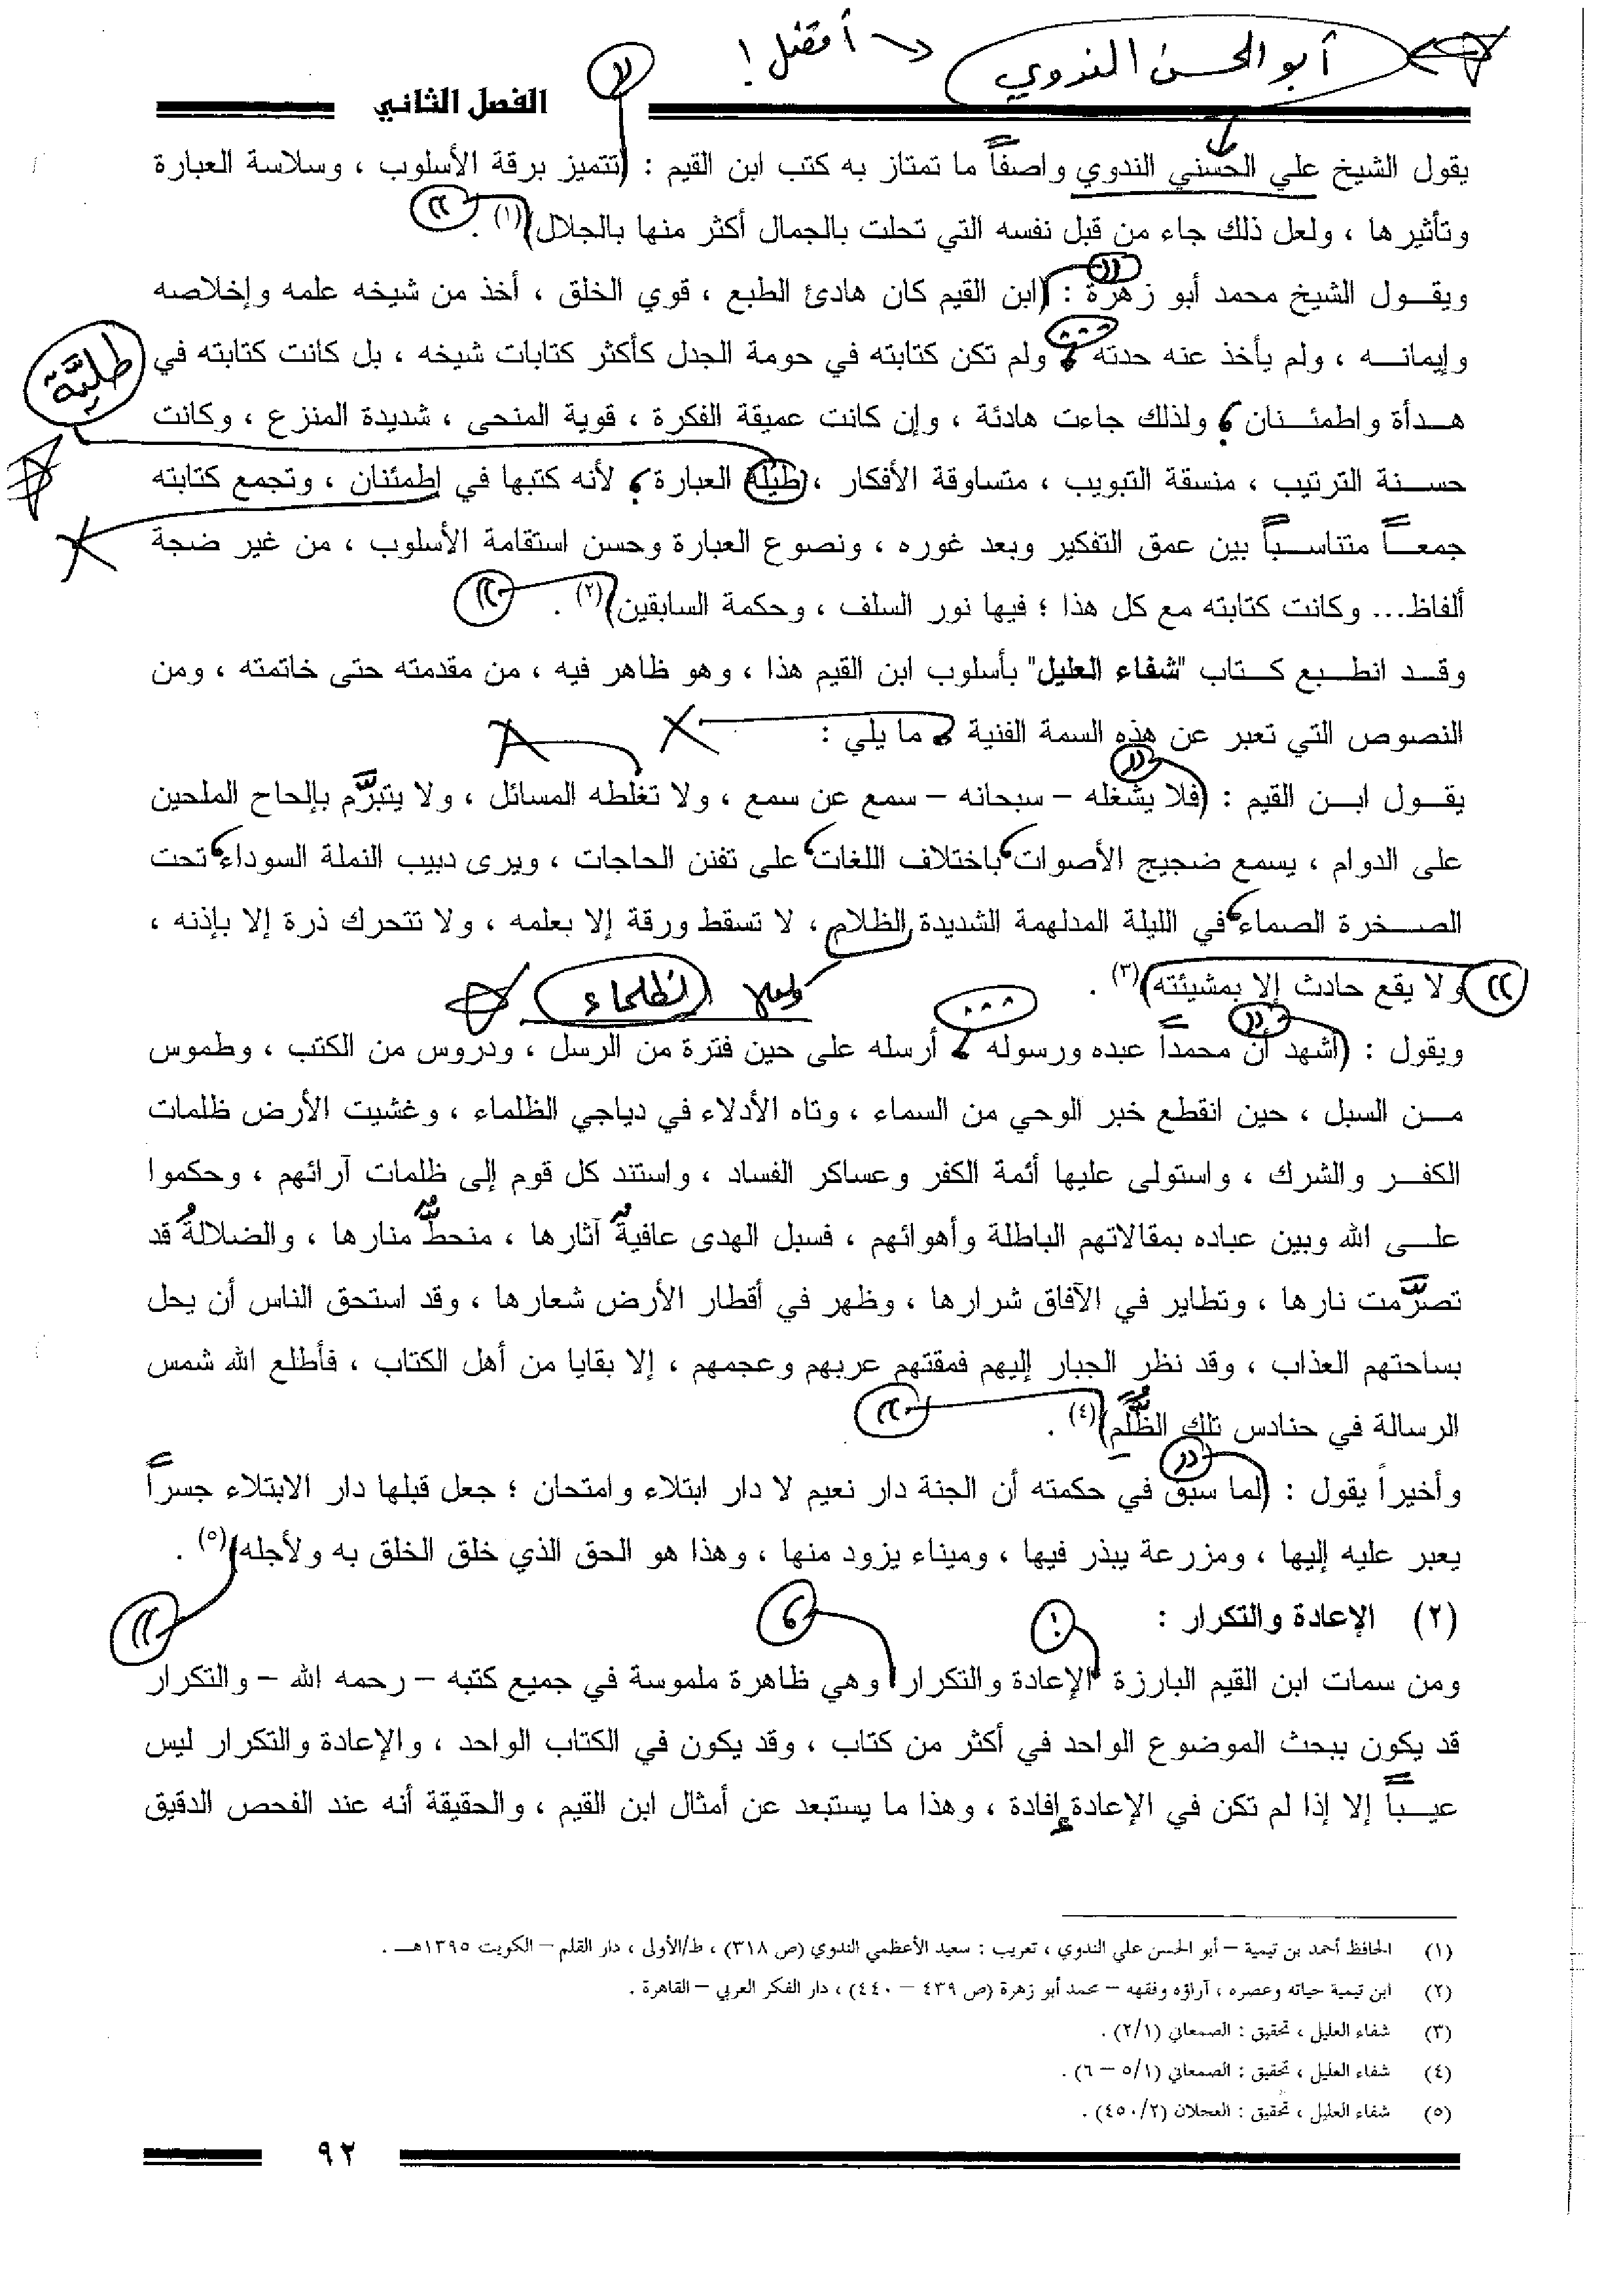 أبو الحسن الندوي
أفضل !
الفصل الثاني
يقول الشيخ علي الحسني الندوي واصفاً ما تمتاز به كتب ابن القيم : (تتميز برقة الأسلوب ، وسلاسة العبارة
وتأثيرها ، ولعل ذلك جاء من قبل نفسه التي تحلت بالجمال أكثر منها بالجلال)(١) .
ويقول الشيخ محمد أبو زهرة : (ابن القيم كان هادئ الطبع ، قوي الخلق ، أخذ من شيخه علمه وإخلاصه
وإيمانه ، ولم يأخذ عنه حدته ، ولم تكن كتابته في حومة الجدل كأكثر كتابات شيخه ، بل كانت كتابته في
طليَّة
هدأة واطمئنان ، ولذلك جاءت هادئة ، وإن كانت عميقة الفكرة ، قوية المنحى ، شديدة المنزع ، وكانت
حسنة الترتيب ، منسقة التبويب ، متساوقة الأفكار ، طيلة العبارة ، لأنه كتبها في إطمئنان ، وتجمع كتابته
جمعاً متناسباً بين عمق التفكير وبعد غوره ، ونصوع العبارة وحسن استقامة الأسلوب ، من غير ضجة
ألفاظ... وكانت كتابته مع كل هذا ؛ فيها نور السلف ، وحكمة السابقين)(٢) .
وقد انطبع كتاب "شفاء العليل" بأسلوب ابن القيم هذا ، وهو ظاهر فيه ، من مقدمته حتى خاتمته ، ومن
النصوص التي تعبر عن هذه السمة الفنية ، ما يلي :
يقول ابن القيم : (فلا يشغله – سبحانه – سمع عن سمع ، ولا تغلطه المسائل ، ولا يتبرَّم بإلحاح الملحين
على الدوام ، يسمع ضجيج الأصوات باختلاف اللغات على تفنن الحاجات ، ويرى دبيب النملة السوداء تحت
الصخرة الصماء في الليلة المدلهمة الشديدة الظلام ، لا تسقط ورقة إلا بعلمه ، ولا تتحرك ذرة إلا بإذنه ،
ولا يقع حادث إلا بمشيئته)(٣) .
الظلماء
ويقول : (أشهد أن محمداً عبده ورسوله ، أرسله على حين فترة من الرسل ، ودروس من الكتب ، وطموس
من السبل ، حين انقطع خبر الوحي من السماء ، وتاه الأدلاء في دياجي الظلماء ، وغشيت الأرض ظلمات
الكفر والشرك ، واستولى عليها أئمة الكفر وعساكر الفساد ، واستند كل قوم إلى ظلمات آرائهم ، وحكموا
على الله وبين عباده بمقالاتهم الباطلة وأهوائهم ، فسبل الهدى عافيةٌ آثارها ، منحطٌّ منارها ، والضلالةُ قد
تصرَّمت نارها ، وتطاير في الآفاق شرارها ، وظهر في أقطار الأرض شعارها ، وقد استحق الناس أن يحل
بساحتهم العذاب ، وقد نظر الجبار إليهم فمقتهم عربهم وعجمهم ، إلا بقايا من أهل الكتاب ، فأطلع الله شمس
الرسالة في حنادس تلك الظُّلَمِ)(٤) .
وأخيراً يقول : (لما سبق في حكمته أن الجنة دار نعيم لا دار ابتلاء وامتحان ؛ جعل قبلها دار الابتلاء جسراً
يعبر عليه إليها ، ومزرعة يبذر فيها ، وميناء يزود منها ، وهذا هو الحق الذي خلق الخلق به ولأجله)(٥) .
(٢) الإعادة والتكرار :
ومن سمات ابن القيم البارزة الإعادة والتكرار وهي ظاهرة ملموسة في جميع كتبه – رحمه الله – والتكرار
قد يكون ببحث الموضوع الواحد في أكثر من كتاب ، وقد يكون في الكتاب الواحد ، والإعادة والتكرار ليس
عيباً إلا إذا لم تكن في الإعادة إفادة ، وهذا ما يستبعد عن أمثال ابن القيم ، والحقيقة أنه عند الفحص الدقيق
(١) الحافظ أحمد بن تيمية – أبو الحسن علي الندوي ، تعريب : سعيد الأعظمي الندوي (ص ٣١٨) ، ط/الأولى ، دار القلم – الكويت ١٣٩٥هـ .
(٢) ابن تيمية حياته وعصره ، آراؤه وفقهه – محمد أبو زهرة (ص ٤٣٩ – ٤٤٠) ، دار الفكر العربي – القاهرة .
(٣) شفاء العليل ، تحقيق : الصمعاني (٢/١) .
(٤) شفاء العليل ، تحقيق : الصمعاني (٥/١ – ٦) .
(٥) شفاء العليل ، تحقيق : العجلان (٤٥٠/٢) .
٩٢